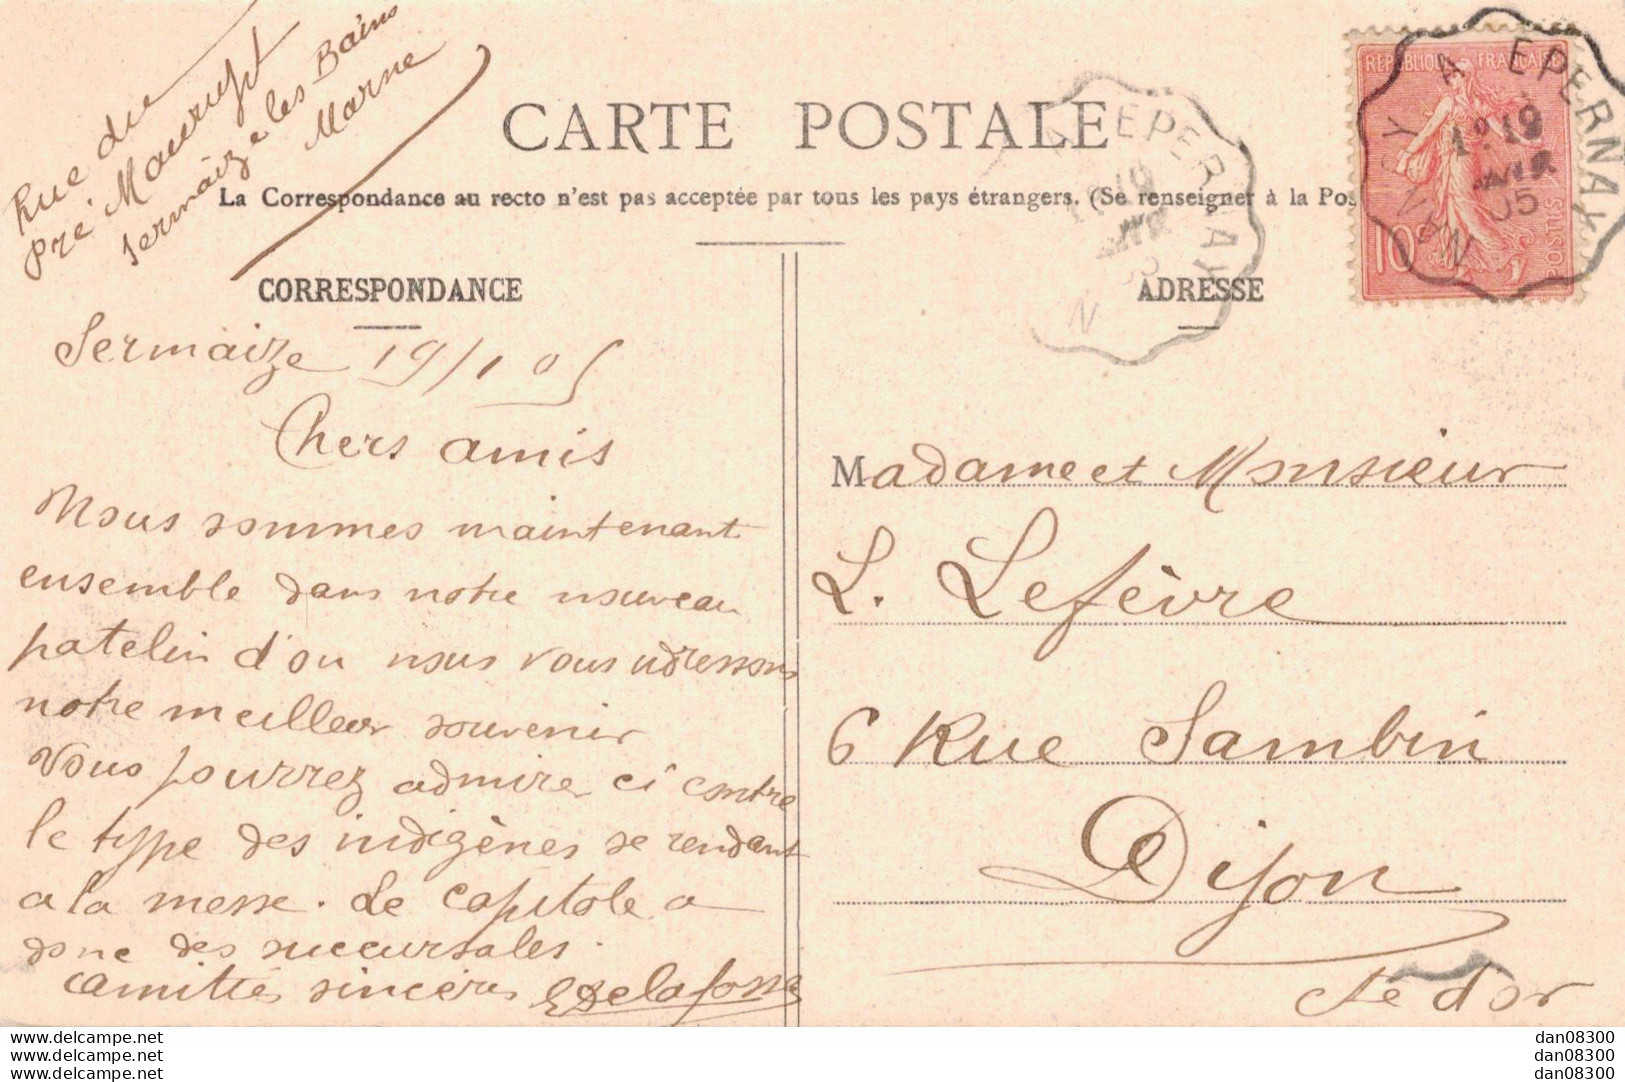 Rue du
Pré Maurupt
Sermaize les Bains
Marne
CARTE POSTALE
La Correspondance au recto n'est pas acceptée par tous les pays étrangers. (Se renseigner à la Pos
RÉPUBLIQUE FRANÇAISE
10c
POSTES
NANCY A EPERNAY
1° 19
JANVR
05
A EPERNAY
N
CORRESPONDANCE
ADRESSE
Sermaize 19/1 05
Chers amis
Nous sommes maintenant
ensemble dans notre nouveau
patelin d'ou nous vous adressons
notre meilleur souvenir
Vous pourrez admirer ci contre
le type des indigènes se rendant
a la messe. Le capitole a
donc des succursales.
amitiés sincères EDelafosse
Madame et Monsieur
L. Lefèvre
6 Rue Sambin
Dijon
Cte d'or
www.delcampe.net
www.delcampe.net
www.delcampe.net
dan08300
dan08300
dan08300